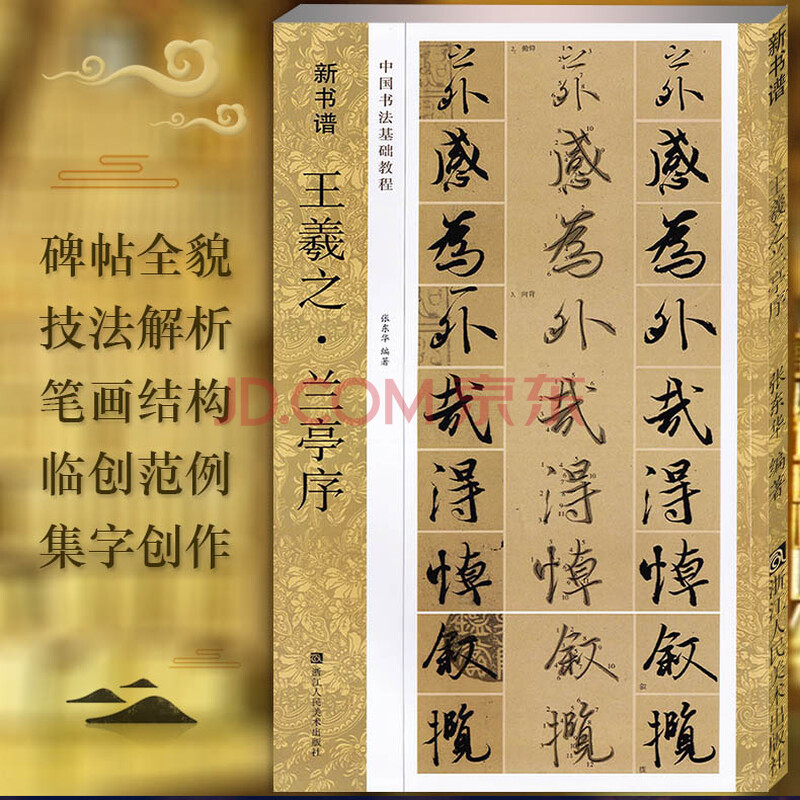 碑帖全貌
技法解析
笔画结构
临创范例
集字创作
新书谱
王羲之·兰亭序
浙江人民美术出版社
中国书法基础教程
张东华 编著
2. 俯仰
外 外 外
感 感 感
為 為 為
3. 向背
外 外 外
哉 哉 哉
得 得 得
悼 悼 悼
叙 叙 叙
叙
揽 揽 揽
新书谱
王羲之兰亭序
张东华 编著
浙江人民美术出版社
JD.COM 京东